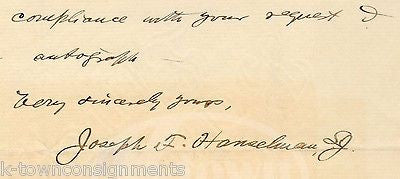 compliance with your request I
autograph —
Very sincerely yours,
Joseph F. Hanselman, S.J.
k-townconsignments